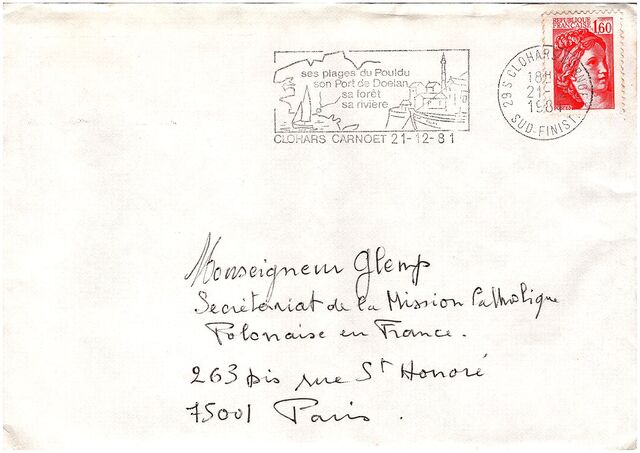 ses plages du Pouldu
son Port de Doelan
sa forêt
sa rivière
CLOHARS CARNOET 21-12-81
REPUBLIQUE
FRANÇAISE
1,60
29S CLOHARS CARNOET
18H
21-
198
SUD-FINIST.
Monseigneur Glemp
Secrétariat de la Mission Catholique
Polonaise en France.
263 bis rue St Honoré
75001 Paris.